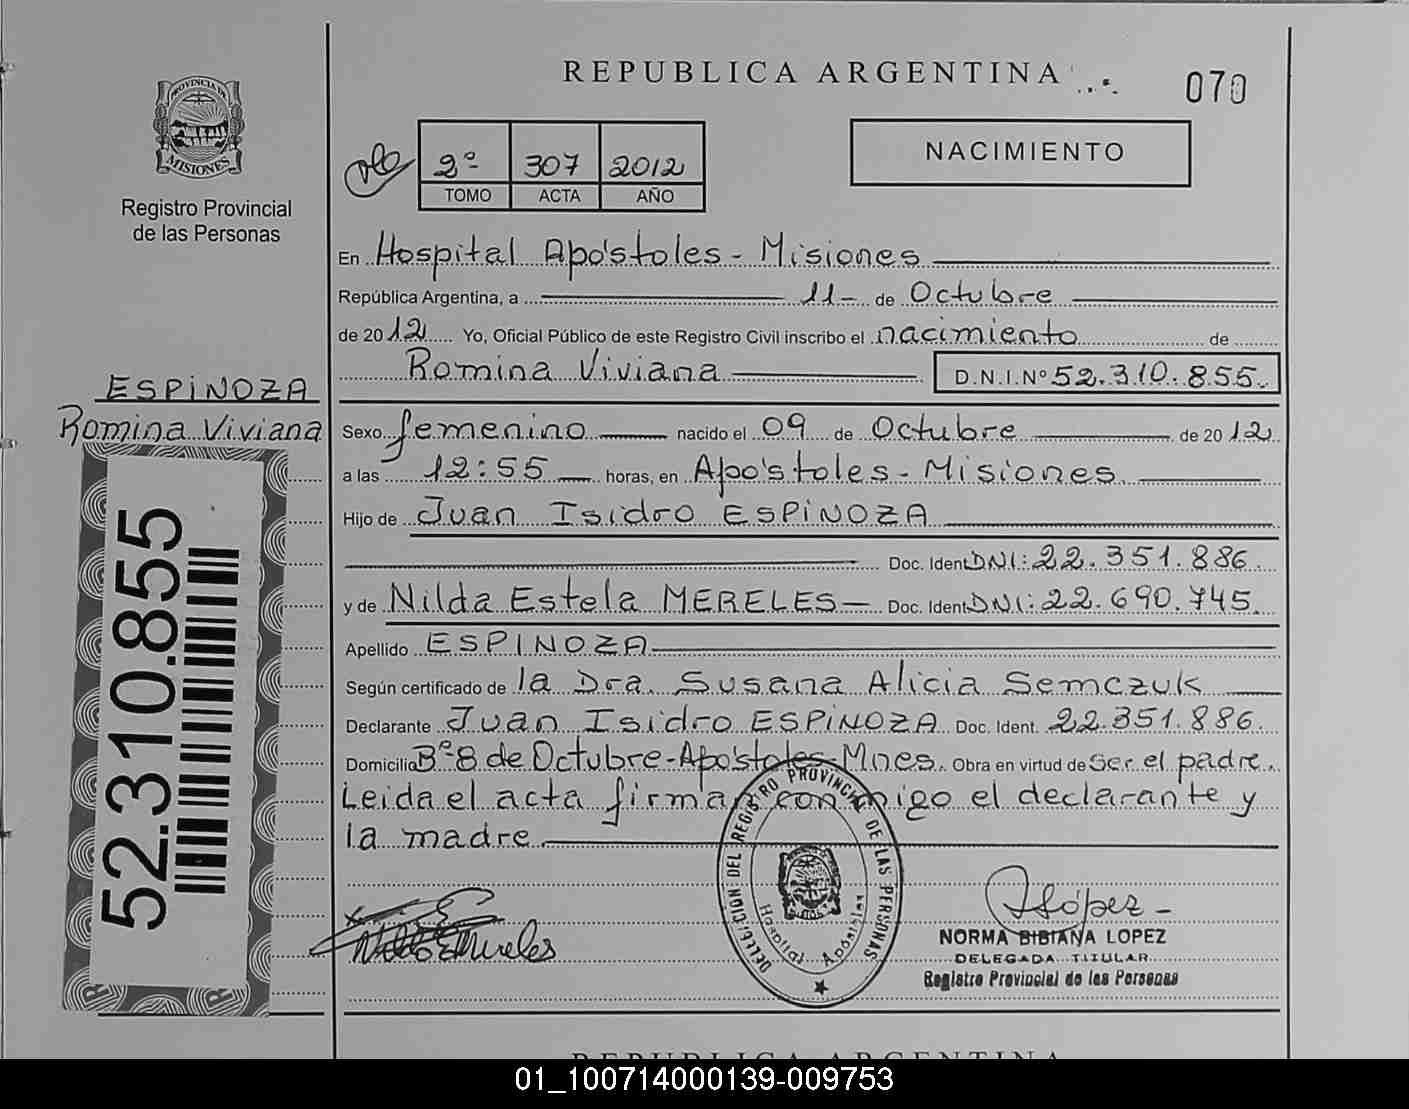 REPUBLICA ARGENTINA
070
PROVINCIA DE
MISIONES
Registro Provincial
de las Personas
2º 307 2012
TOMO ACTA AÑO
NACIMIENTO
En Hospital Apóstoles - Misiones
República Argentina, a 11 - de Octubre
de 2012 Yo, Oficial Público de este Registro Civil inscribo el nacimiento de
Romina Viviana D.N.I.Nº 52.310.855.
ESPINOZA
Romina Viviana
Sexo femenino nacido el 09 de Octubre de 2012
a las 12:55 horas, en Apóstoles - Misiones
Hijo de Juan Isidro ESPINOZA
Doc. Ident. DNI: 22.351.886
y de Nilda Estela MERELES Doc. Ident. DNI: 22.690.745.
Apellido ESPINOZA
Según certificado de la Dra. Susana Alicia Semczuk
Declarante Juan Isidro ESPINOZA Doc. Ident. 22.351.886.
Domicilio Bº 8 de Octubre - Apóstoles - Mnes. Obra en virtud de ser el padre.
Leida el acta firman conmigo el declarante y
la madre
52.310.855
DELEGACION DEL REGISTRO PROVINCIAL DE LAS PERSONAS
Hospital Apóstoles
López -
NORMA BIBIANA LOPEZ
DELEGADA TITULAR
Registro Provincial de las Personas
REPUBLICA ARGENTINA
01_100714000139-009753